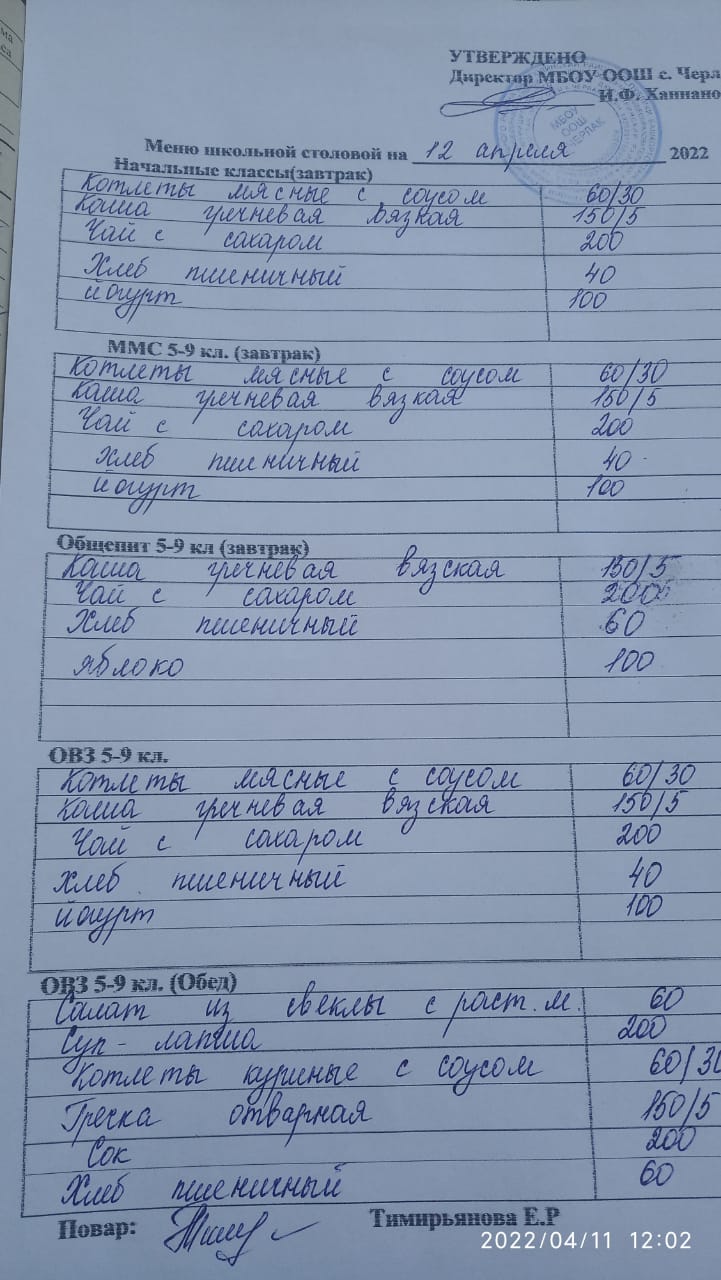 УТВЕРЖДЕНО
Директор МБОУ ООШ с. Черл
И.Ф. Ханнано
МБОУ ООШ ЧЕРЛАК
Меню школьной столовой на 12 апреля 2022
Начальные классы(завтрак)
Котлеты мясные с соусом 60/30
Каша гречневая вязкая 150/5
Чай с сахаром 200
Хлеб пшеничный 40
йогурт 100
ММС 5-9 кл. (завтрак)
Котлеты мясные с соусом 60/30
Каша гречневая вязкая 150/5
Чай с сахаром 200
хлеб пшеничный 40
йогурт 100
Общепит 5-9 кл (завтрак)
Каша гречневая вязская 150/5
Чай с сахаром 200
Хлеб пшеничный 60
яблоко 100
ОВЗ 5-9 кл.
Котлеты мясные с соусом 60/30
Каша гречневая вязская 150/5
Чай с сахаром 200
хлеб пшеничный 40
йогурт 100
ОВЗ 5-9 кл. (Обед)
Салат из свеклы с раст. м. 60
Суп - лапша 200
Котлеты куриные с соусом 60/30
Греска отварная 150/5
Сок 200
Хлеб пшеничный 60
Повар: Тимирьянова Е.Р
2022/04/11 12:02